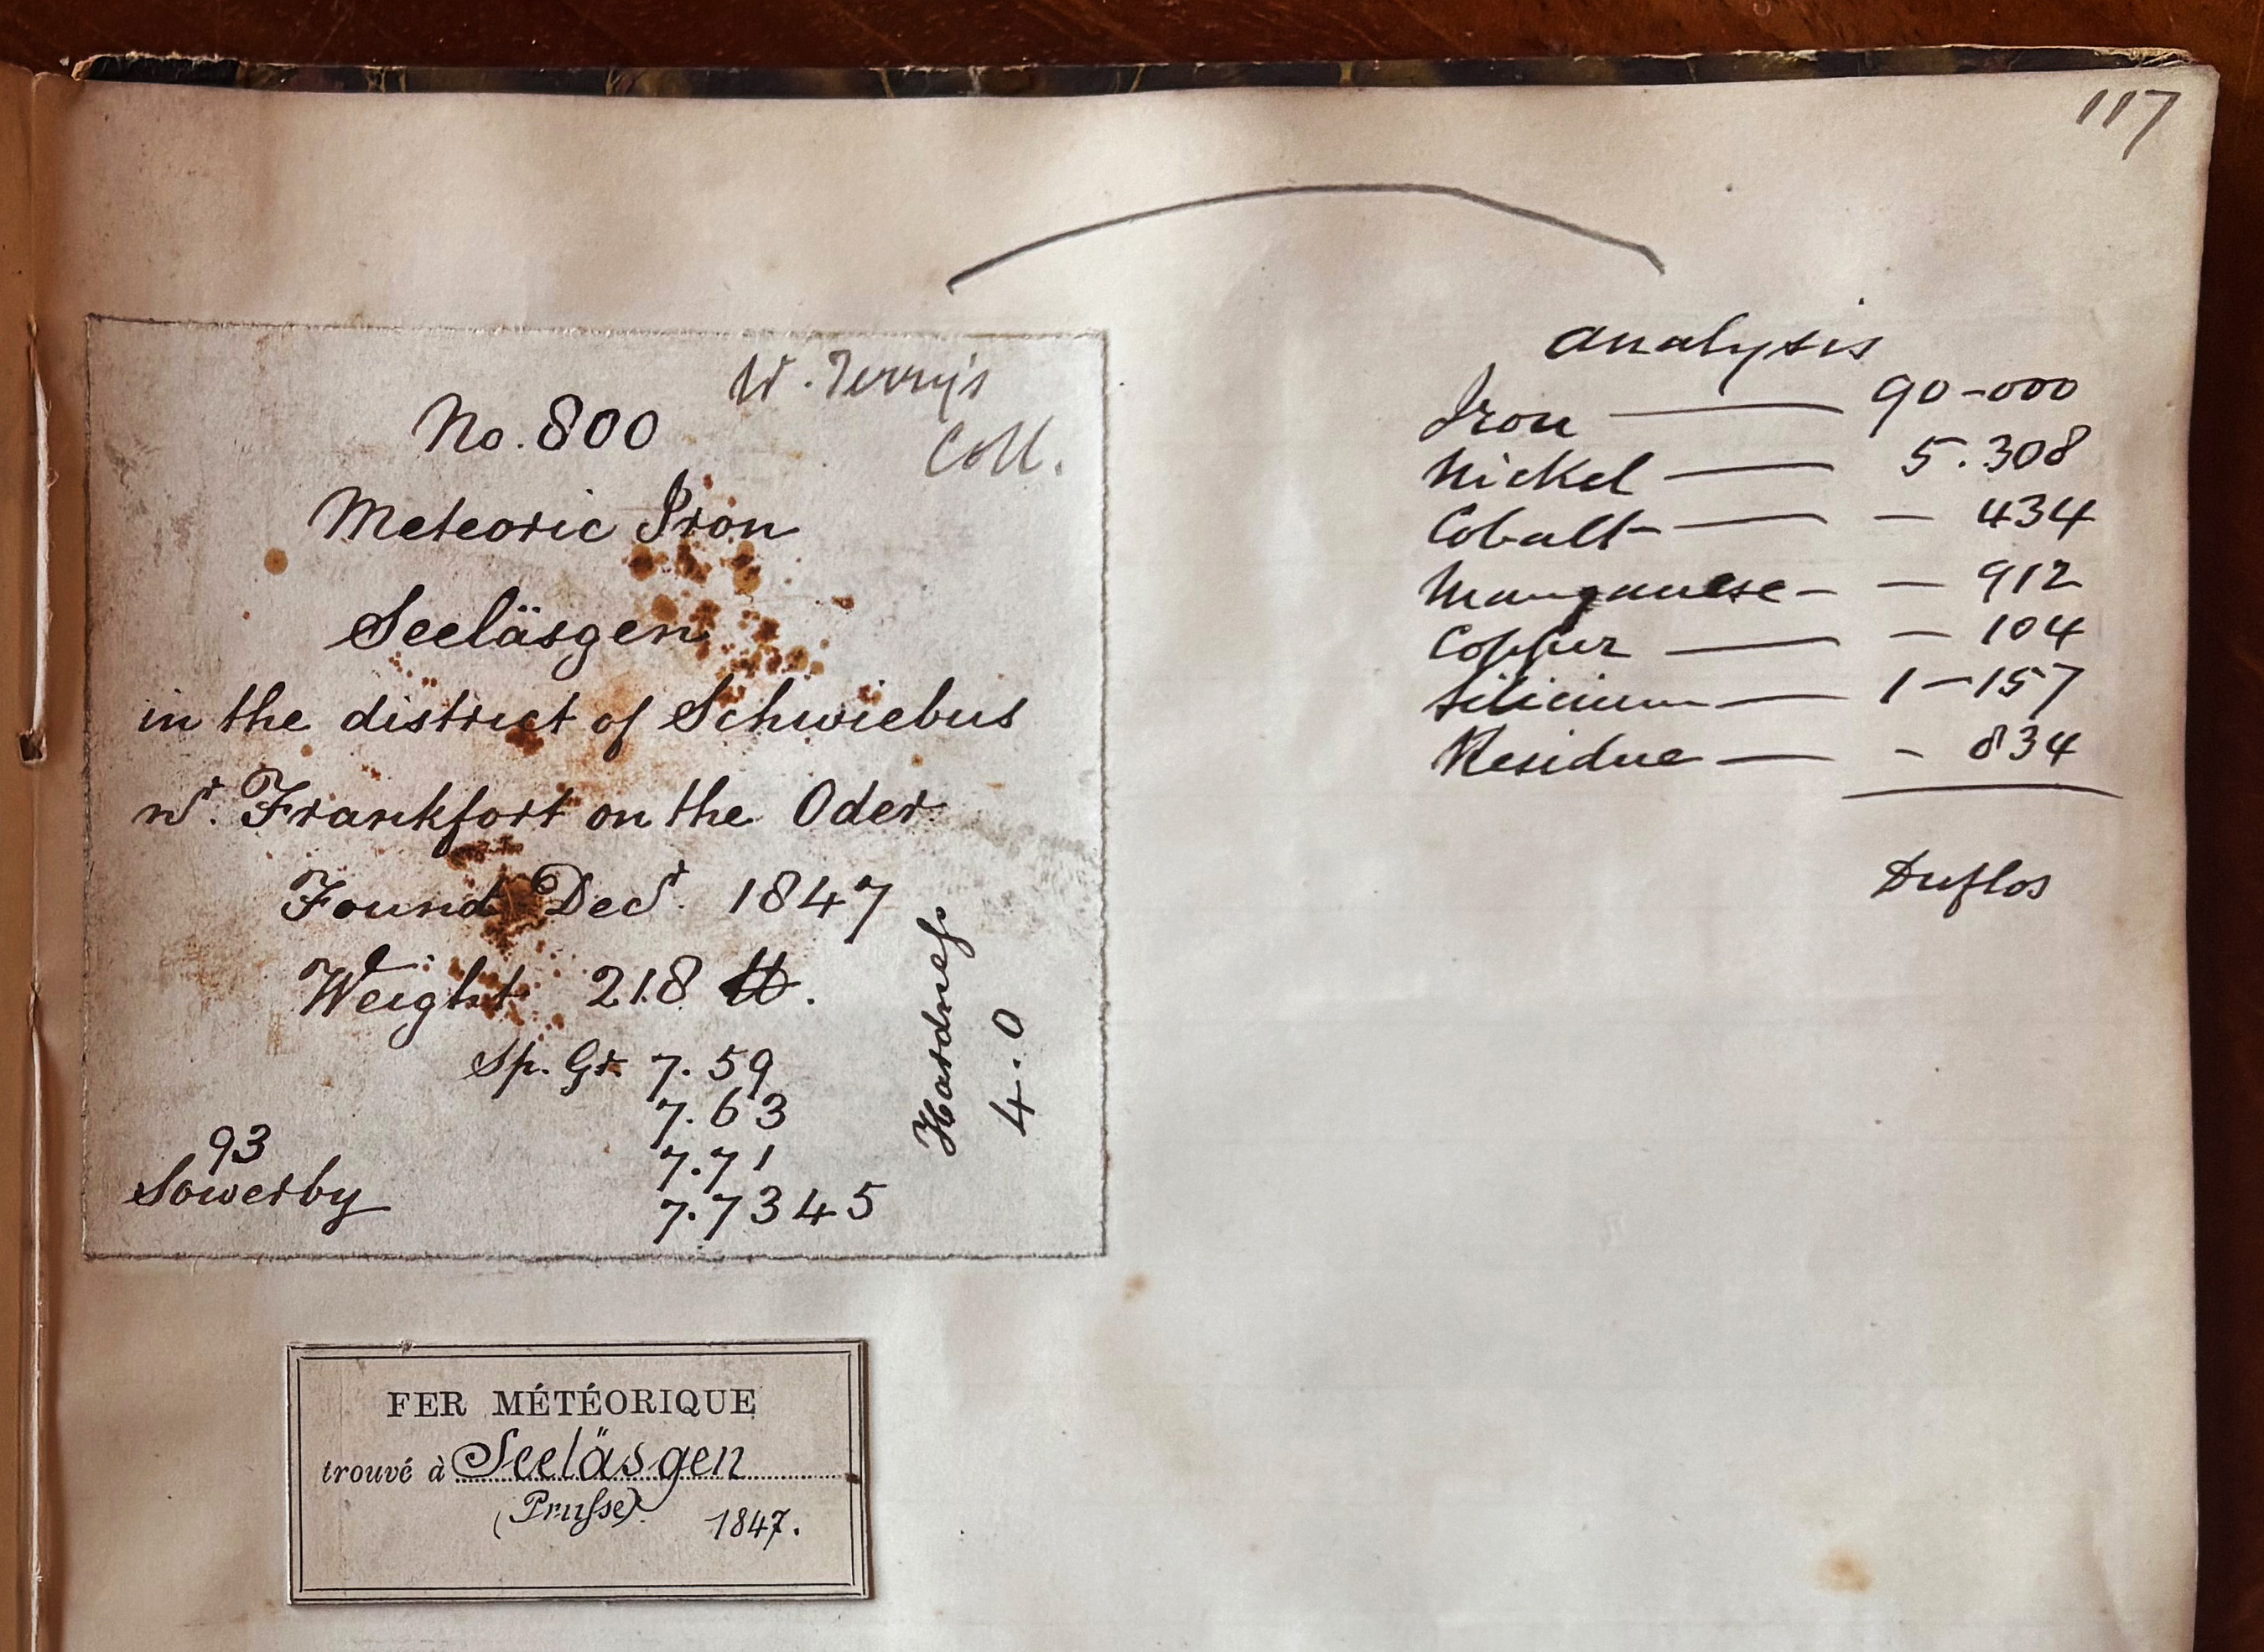 117
W. Terry's
Coll.
No. 800
Meteoric Iron
Seeläsgen
in the district of Schwiebus
nr. Frankfort on the Oder
Found Decr. 1847
Weight 218 lb.
Sp. Gr. 7.59
7.63
7.71
7.7345
Hardness
4.0
93
Sowerby
Analysis
Iron — 90-000
Nickel — 5.308
Cobalt — - 434
Manganese - - 912
Copper — - 104
Silicium — 1-157
Residue — - 834
Duflos
FER MÉTÉORIQUE
trouvé à Seeläsgen
(Prusse). 1847.